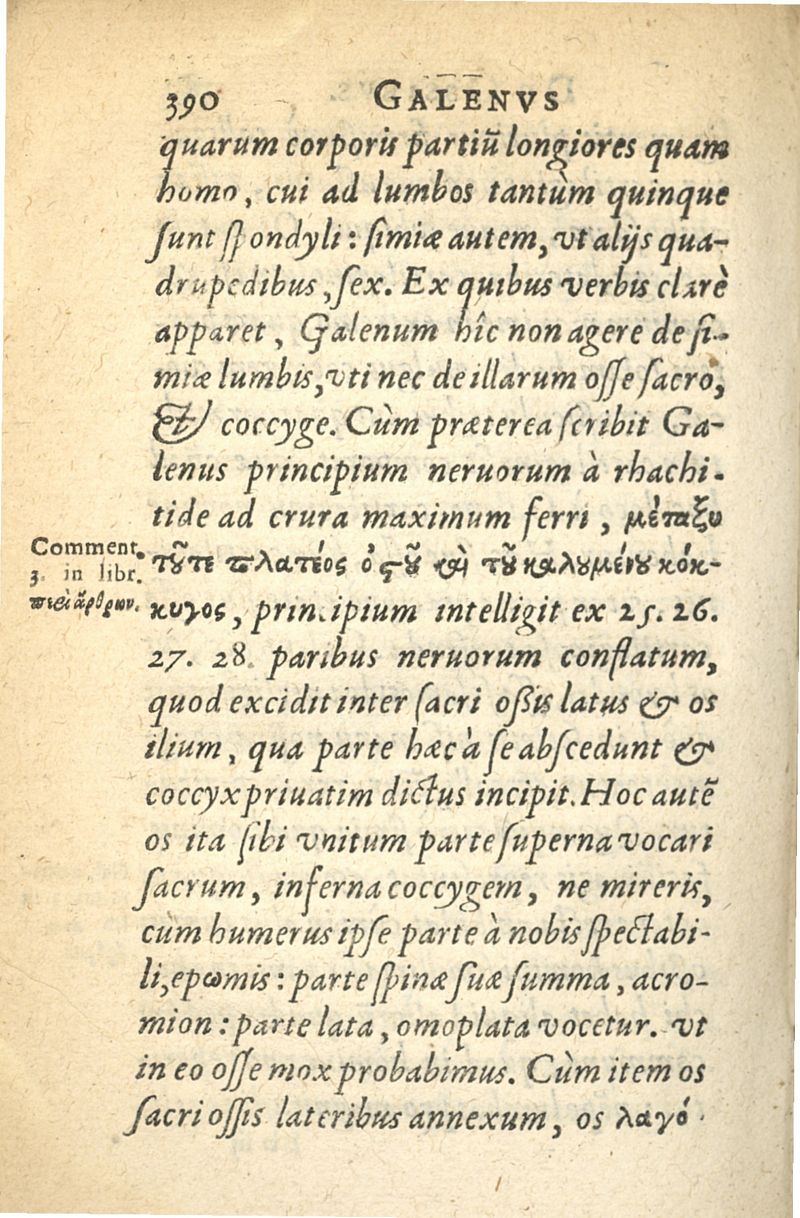 390 GALENVS
quarum corporis partiũ longiores quam
homo, cui ad lumbos tantùm quinque
ſunt ſpondyli: ſimiæ autem, vt alijs qua-
drupedibus, ſex. Ex quibus verbis clarè
apparet, Galenum hîc non agere de ſi-
miæ lumbis, vti nec de illarum oſſe ſacro,
& coccyge. Cùm præterea ſcribit Ga-
lenus principium neruorum à rhachi-
tide ad crura maximum ferri, μέταξυ
Comment.
3. in libr.
περὶ ἄρθρων.
τȣ͂τε πλατέος ὀϛȣ͂ καὶ τȣ͂ καλȣμένȣ κόκ-
κυγος, principium intelligit ex 25. 26.
27. 28. paribus neruorum conflatum,
quod excidit inter ſacri oſſis latus & os
ilium, qua parte hæc à ſe abſcedunt &
coccyx priuatim dictus incipit. Hoc autẽ
os ita ſibi vnitum parte ſuperna vocari
ſacrum, inferna coccygem, ne mireris,
cùm humerus ipſe parte à nobis ſpectabi-
li, epωmis: parte ſpinæ ſuæ ſumma, acro-
mion: parte lata, omoplata vocetur. vt
in eo oſſe mox probabimus. Cùm item os
ſacri oſſis lateribus annexum, os λαγό